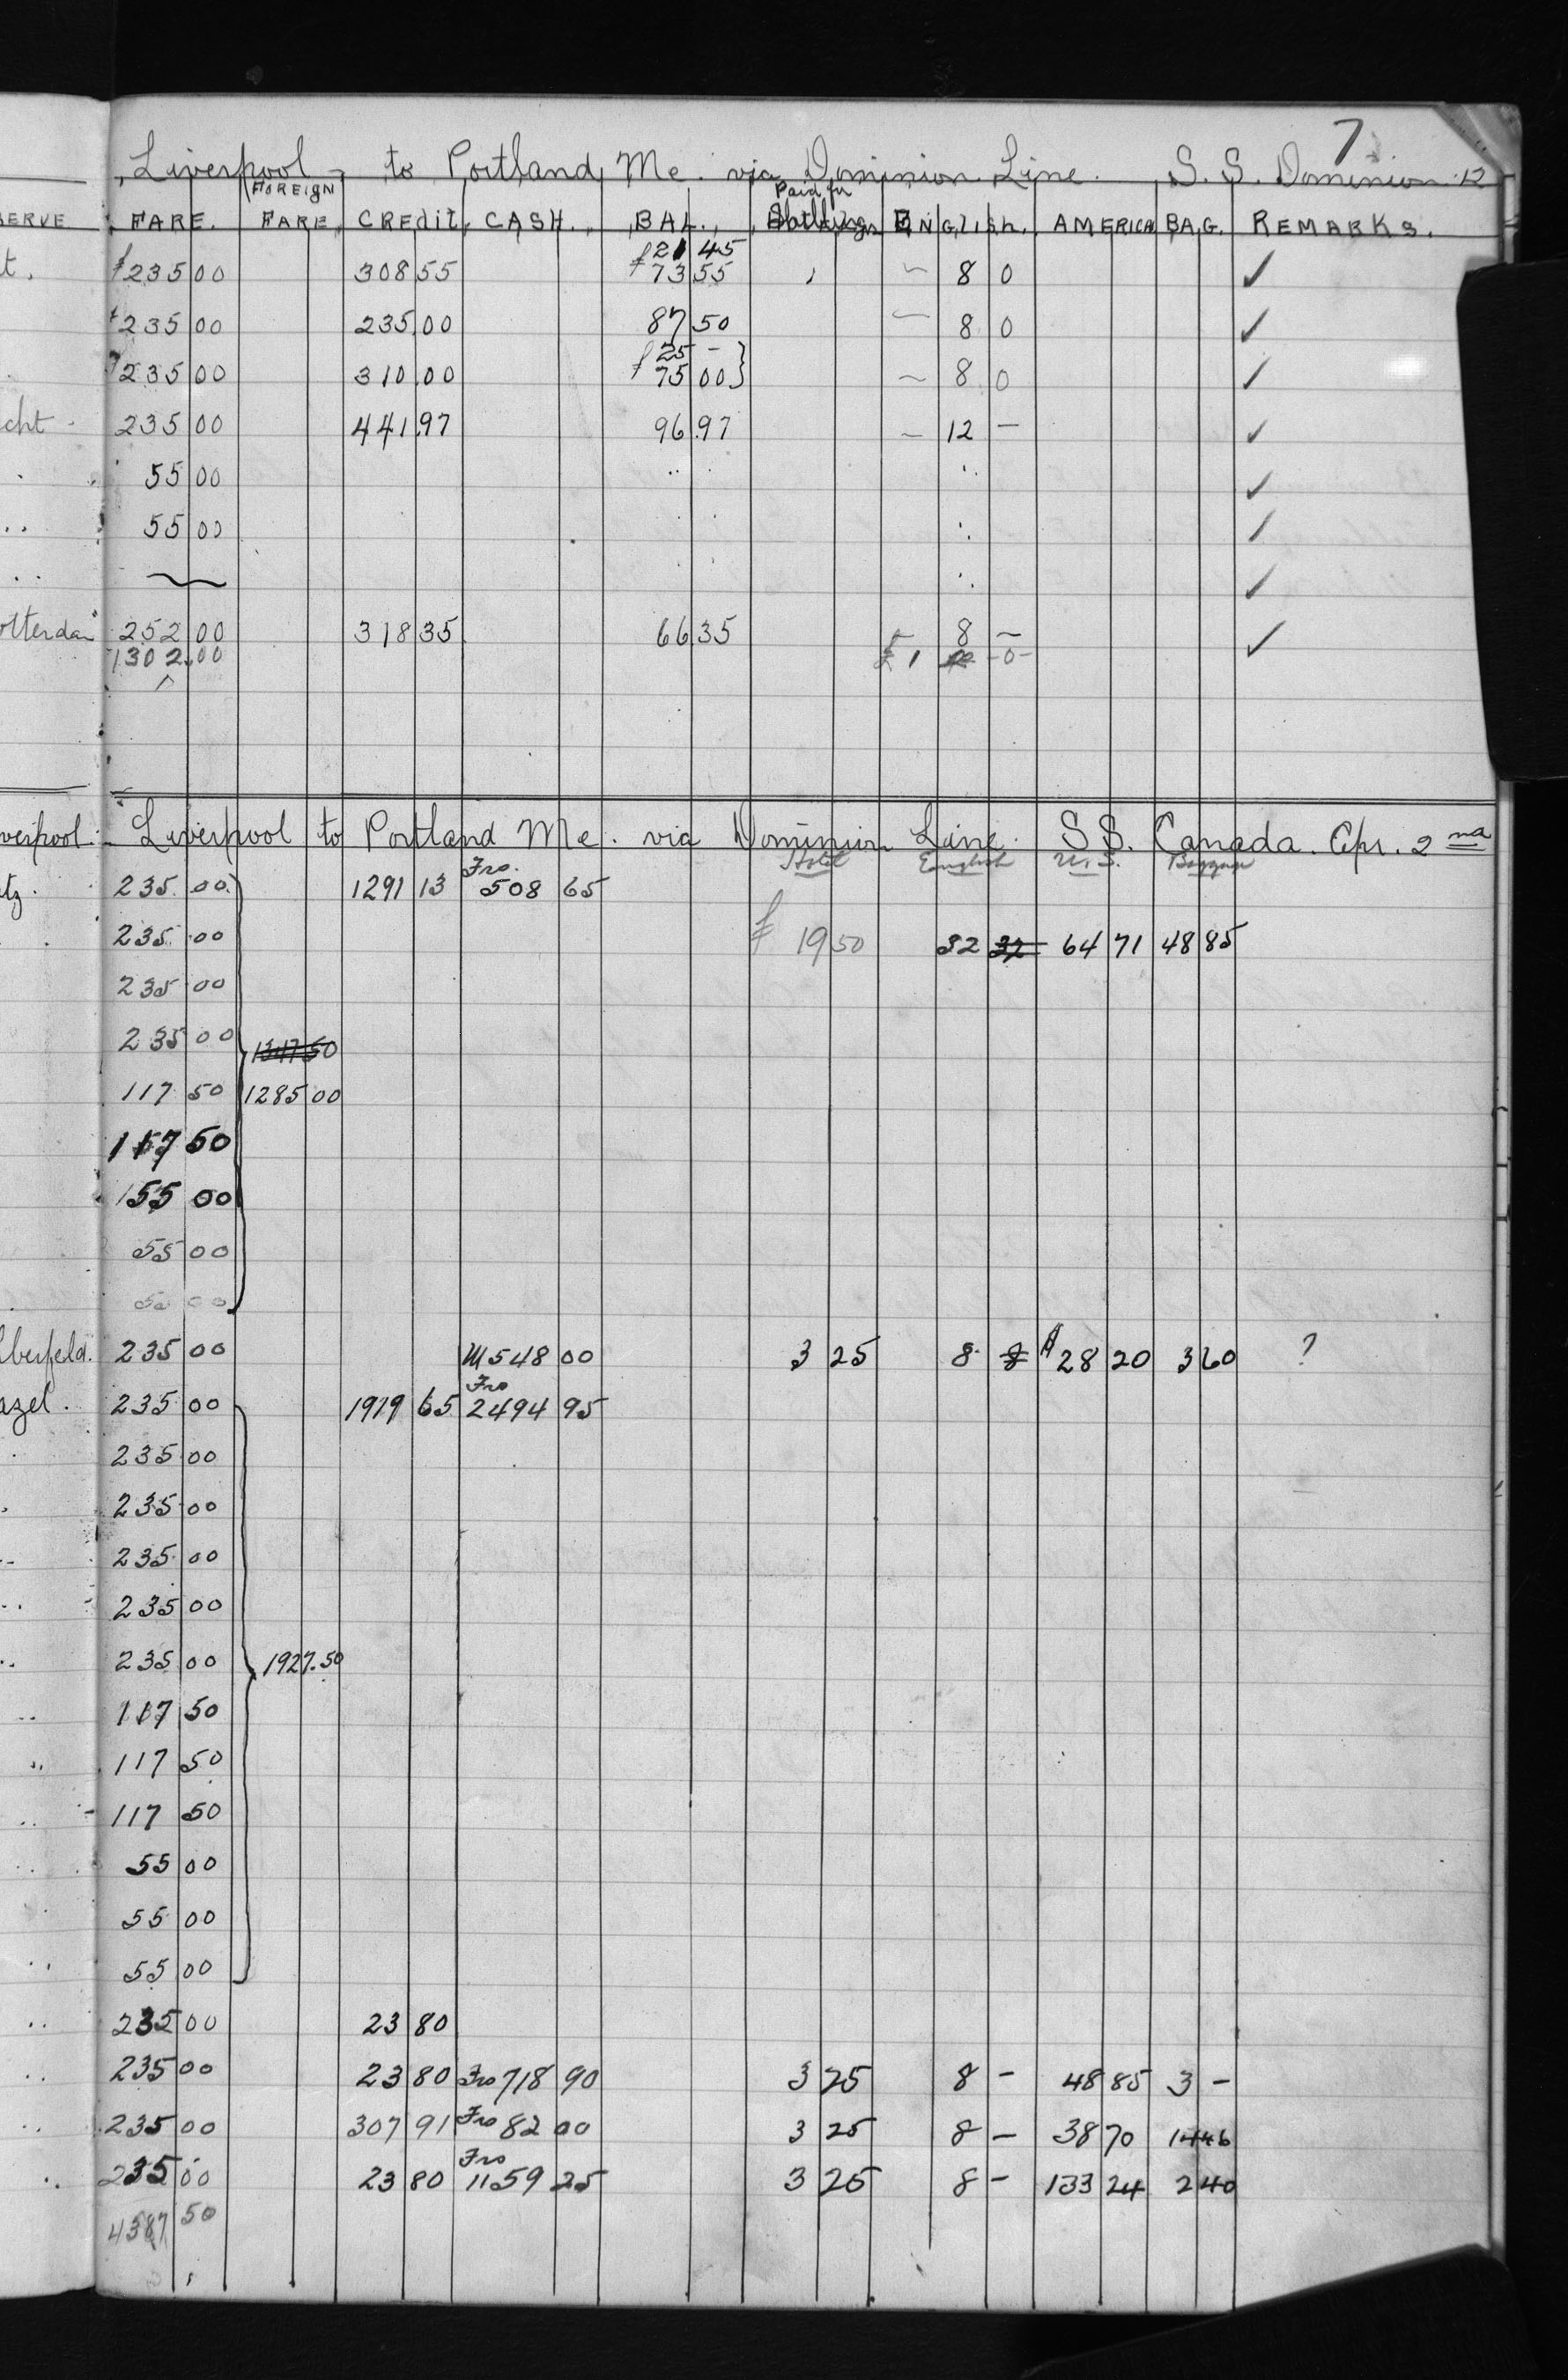 7
Liverpool to Portland, Me. via Dominion Line. S. S. Dominion 12
SERVE FARE. FOREIGN FARE, CREDIT, CASH. BAL., Paid for ENGLISH. AMERICA BAG. REMARKS.
21 45
t. f235 00 308 55 f 73 55 8 0 ✓
235 00 235.00 87 50 8 0 ✓
f 25 -
235 00 310.00 75 00} ~ 8 0 ✓
cht - 235 00 441.97 96.97 ~ 12 - ✓
55 00 ✓
55 00 ✓
~ ✓
otterdam 252 00 318 35 66.35 8 ~ ✓
1302.00 £ 1 -0-
verpool: Liverpool to Portland Me. via Dominion Line. S S. Canada. Apr. 2nd
Hotel English U.S. Baggage
tz. 235.00 1291 13 Frs. 508 65
235.00 f 19 50 32 32 64 71 48 85
235 00
235 00 1347 50
117 50 1285 00
117 50
155 00
55 00
55 00
lberfeld. 235 00 M 548 00 3 25 8 8 28 20 3 60 ?
azel. 235 00 1919 65 Frs 2494 95
235 00
235 00
235 00
235 00
235 00 1927.50
117 50
117 50
117 50
55 00
55 00
55 00
235 00 23 80
235 00 23 80 Frs 718 90 3 25 8 - 48 85 3 -
235 00 307 91 Frs 82 00 3 25 8 - 38 70 1446
235 00 23 80 Frs 1159 25 3 25 8 - 133 24 2 40
4587 50